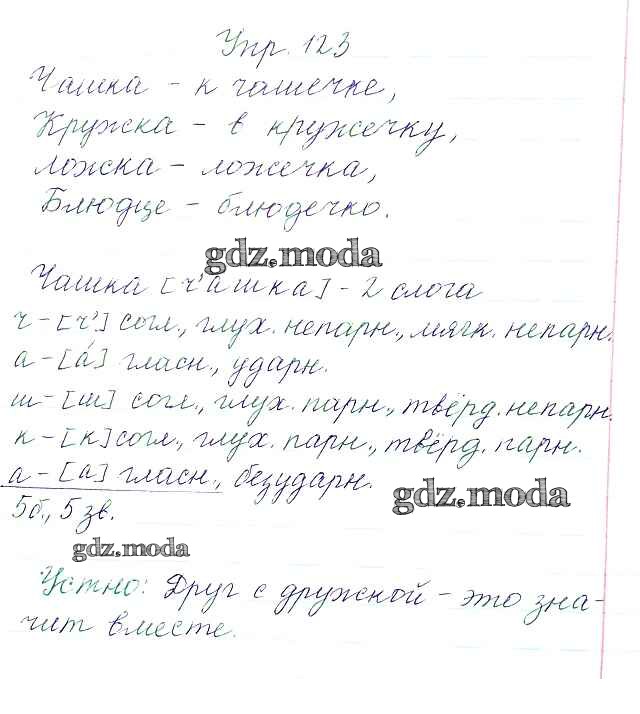 Упр. 123
Чашка - к чашечке,
Кружка - в кружечку,
ложка - ложечка,
Блюдце - блюдечко.
gdz.moda
Чашка [ч'ашка] - 2 слога
ч - [ч'] согл., глух. непарн., мягк. непарн.
а - [а́] гласн., ударн.
ш - [ш] согл., глух. парн., твёрд. непарн.
к - [к] согл., глух. парн., твёрд. парн.
а - [а] гласн., безударн.
gdz.moda
5б., 5 зв.
gdz.moda
Устно: Друг с дружкой - это зна-
чит вместе.